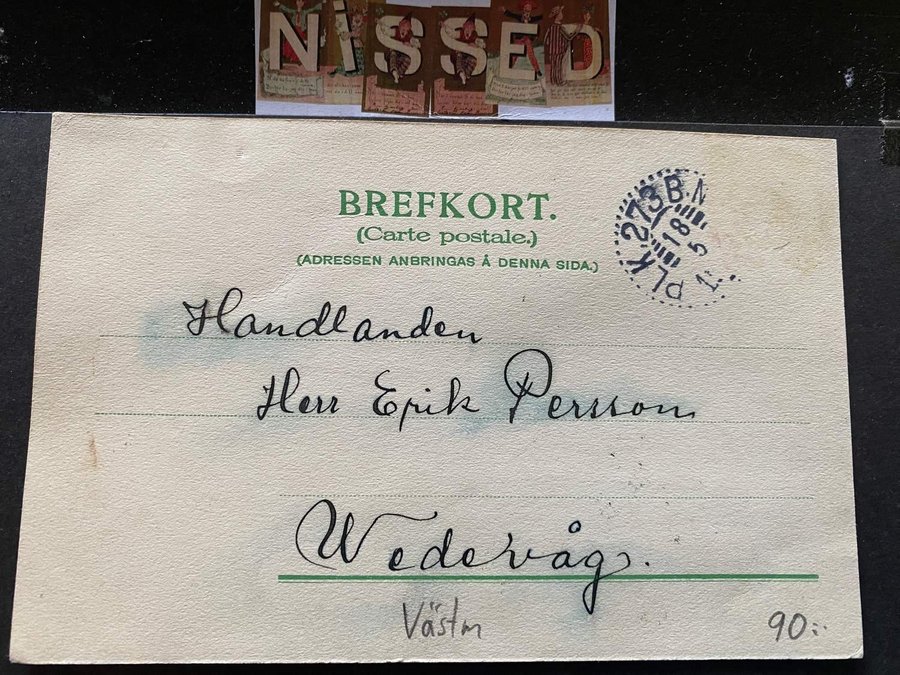 NISSED
BREFKORT.
(Carte postale.)
(ADRESSEN ANBRINGAS Å DENNA SIDA.)
PLK 273 B.N
18
5
Handlanden
Herr Erik Persson
Wedevåg.
Västm
90:-